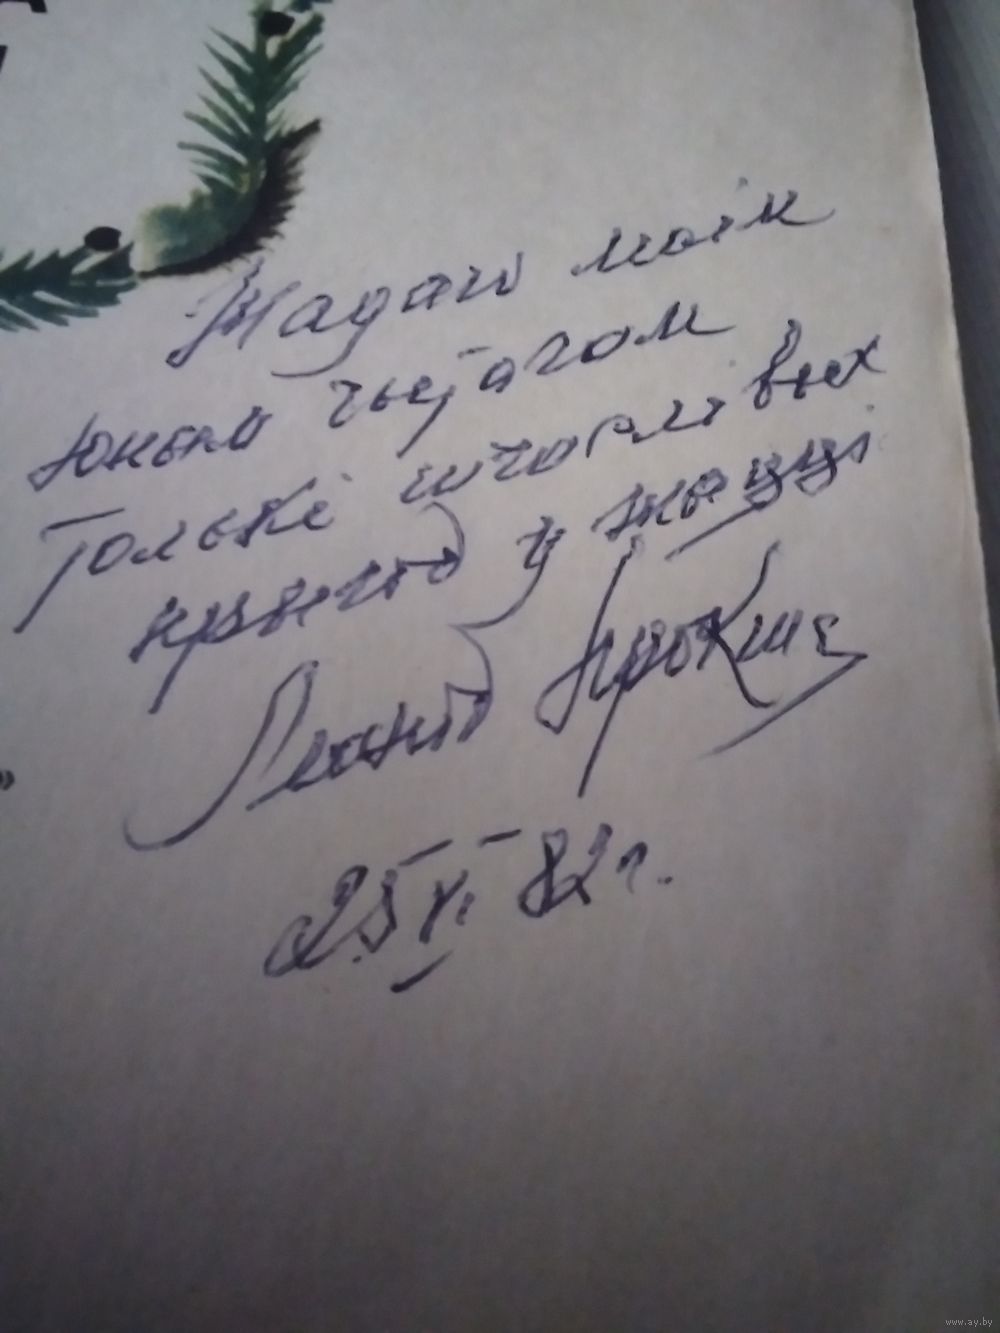 А
Жадаю маім
юным чытачом
толькі шчаслівых
крыніц у жыцці
Леанід Пракша
25 VI 82 г.
»
www.ay.by